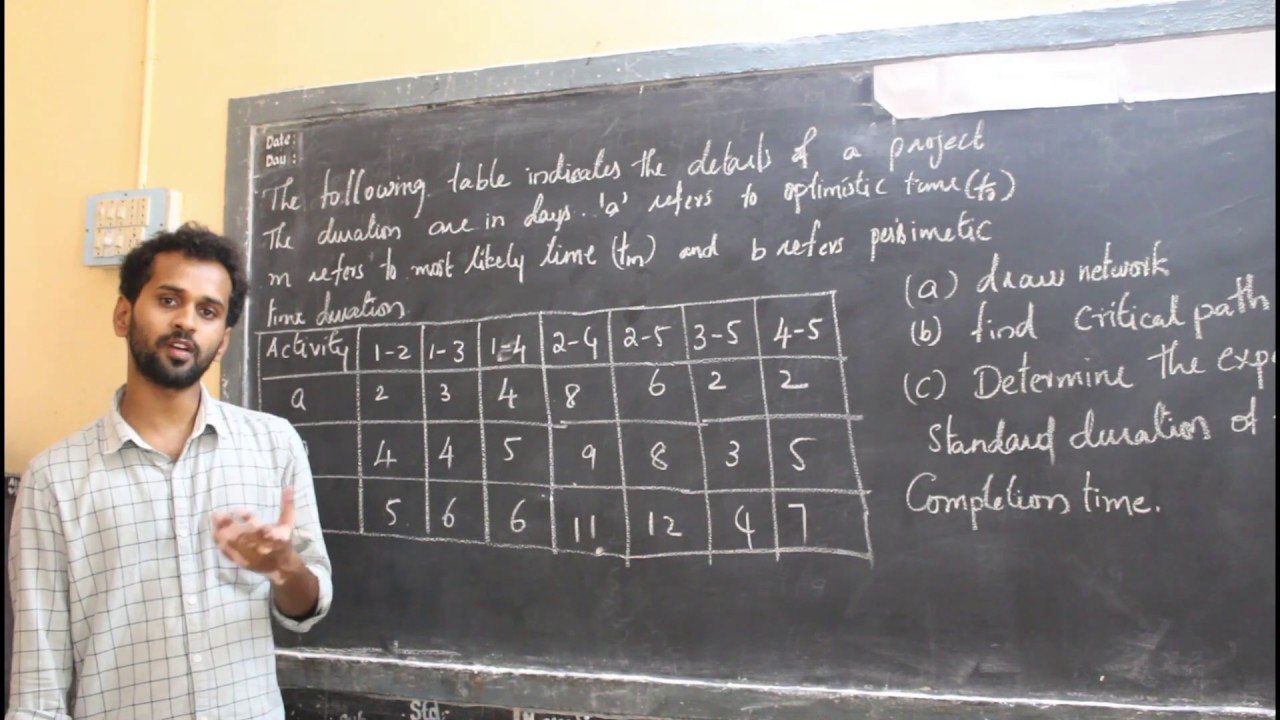 Date:
Day :
The following table indicates the details of a project
The duration are in days. 'a' refers to optimistic time (to)
m refers to most likely time (tm) and b refers pessimetic
time duration
Activity 1-2 1-3 1-4 2-4 2-5 3-5 4-5
a 2 3 4 8 6 2 2
4 4 5 9 8 3 5
5 6 6 11 12 4 7
(a) draw network
(b) find critical path
(c) Determine the exp
Standard duration of
Completion time.
Std: